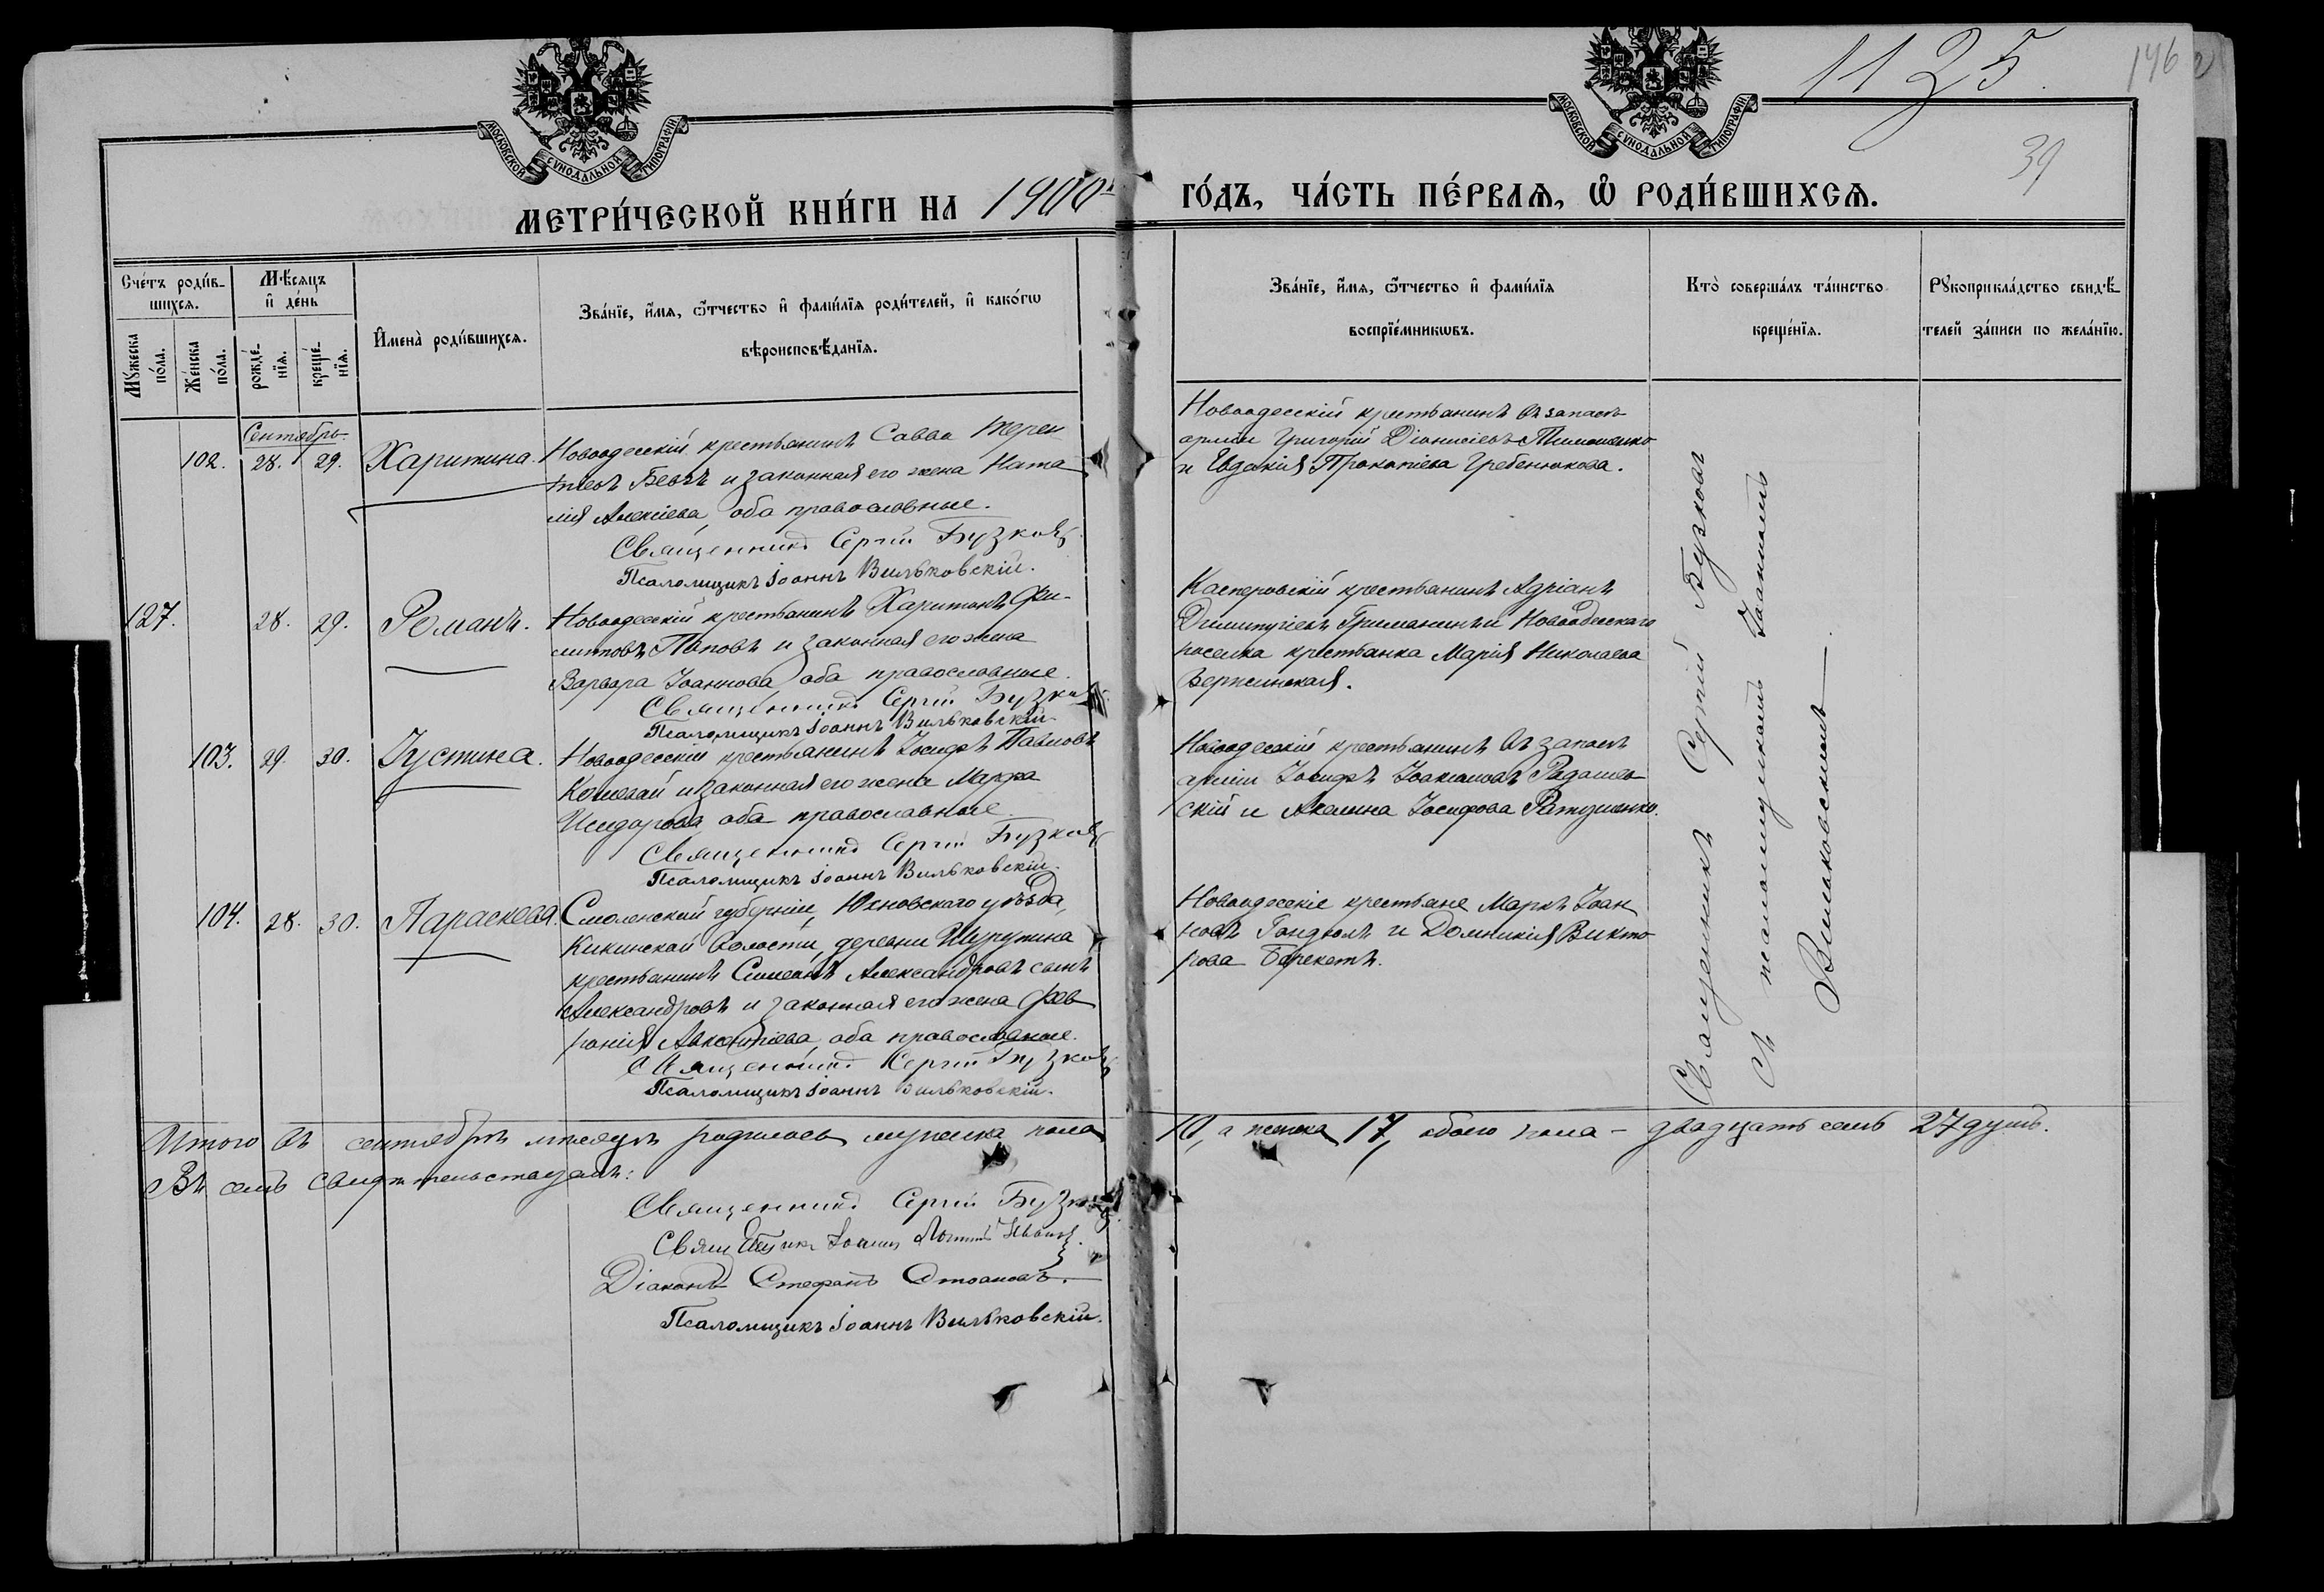 МОСКОВСКОЙ СѴНОДАЛЬНОЙ ТИПОГРАФІИ
МОСКОВСКОЙ СѴНОДАЛЬНОЙ ТИПОГРАФІИ
1125.
146
39
МЕТРИ́ЧЕСКОЙ КНИ́ГИ НА 1900й
ГО́ДЪ, ЧА́СТЬ ПЕ́РВАѦ, Ѡ҆ РОДИ́ВШИХСѦ.
Сче́тъ роди́в-
шихсѧ.
Мѣ́сяцъ
и҆ де́нь
Мꙋ́жеска
по́ла.
Же́нска
по́ла.
рожде́-
нїѧ.
креще́-
нїѧ.
И҆мена̀ роди́вшихсѧ.
Зва́нїе, и҆́мѧ, ѻ҆́тчество и҆ фами́лїѧ роди́телей, и҆ како́гѡ
вѣроисповѣ́данїѧ.
Зва́нїе, и҆́мѧ, ѻ҆́тчество и҆ фами́лїѧ
воспрїе́мникѡвъ.
Кто̀ соверша́лъ та́инство
креще́нїѧ.
Рꙋкоприкла́дство свидѣ́-
телей за́писи по жела́нїю.
Сентябрь
102. 28. 29. Харитина.
Новоодесскій крестьянинъ Савва Терен
тіевъ и законная его жена Ната
лія Алексіева, оба православные.
Священникъ Сергій Бузковъ
Псаломщикъ Іоаннъ Вильковскій.
Новоодесскій крестьянинъ въ запасѣ
арміи Григорій Діонисіевъ Тимошенко
и Евдокія Прокопіева Гребенюкова.
127. 28. 29. Романъ.
Новоодесскій крестьянинъ Харитонъ Фи-
липповъ Поповъ и законная его жена
Варвара Іоаннова, оба православные.
Священникъ Сергій Бузковъ
Псаломщикъ Іоаннъ Вильковскій.
Касперовскій крестьянинъ Адріанъ
Димитріевъ и Новоодесскаго
поселка крестьянка Марія Николаева
103. 29. 30. Іустина.
Новоодесскій крестьянинъ Іосифъ Павловъ
и законная его жена Марѳа
Исидорова, оба православные.
Священникъ Сергій Бузковъ
Псаломщикъ Іоаннъ Вильковскій.
Новоодесскій крестьянинъ въ запасѣ
арміи Іосифъ Іоакимовъ Радошев
скій и Акилина Іосифова Ратушенко.
104. 28. 30. Параскева.
Смоленской губерніи, Юхновскаго уѣзда,
Кикинской волости, деревни
крестьянинъ Симеонъ Александровъ сынъ
Александровъ и законная его жена Фев
ронія Авксентіева, оба православные.
Священникъ Сергій Бузковъ
Псаломщикъ Іоаннъ Вильковскій.
Новоодесскіе крестьяне Маркъ Іоан
новъ и Домникія Викто
рова
Священникъ Сергій Бузковъ
съ псаломщикомъ Іоанномъ
Вильковскимъ
Итого въ сентябрѣ мѣсяцѣ родилось мужеска пола 10, а женска 17, обоего пола - двадцать семь 27 душъ.
Въ семъ свидѣтельствуемъ:
Священникъ Сергій Бузковъ
Священникъ Іоаннъ
Діаконъ Стефанъ Стоановъ.
Псаломщикъ Іоаннъ Вильковскій.